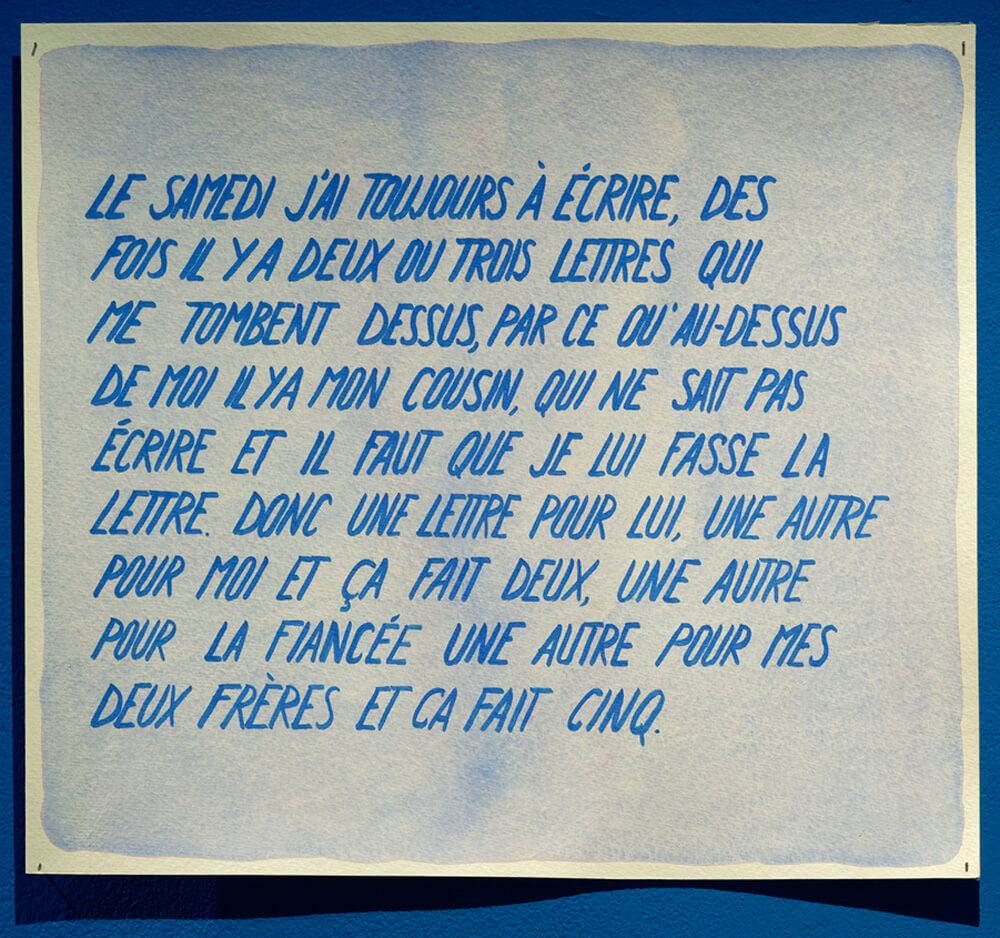 LE SAMEDI J'AI TOUJOURS À ÉCRIRE, DES
FOIS IL Y A DEUX OU TROIS LETTRES QUI
ME TOMBENT DESSUS, PAR CE QU'AU-DESSUS
DE MOI IL Y A MON COUSIN, QUI NE SAIT PAS
ÉCRIRE ET IL FAUT QUE JE LUI FASSE LA
LETTRE. DONC UNE LETTRE POUR LUI, UNE AUTRE
POUR MOI ET ÇA FAIT DEUX, UNE AUTRE
POUR LA FIANCÉE UNE AUTRE POUR MES
DEUX FRÈRES ET CA FAIT CINQ.